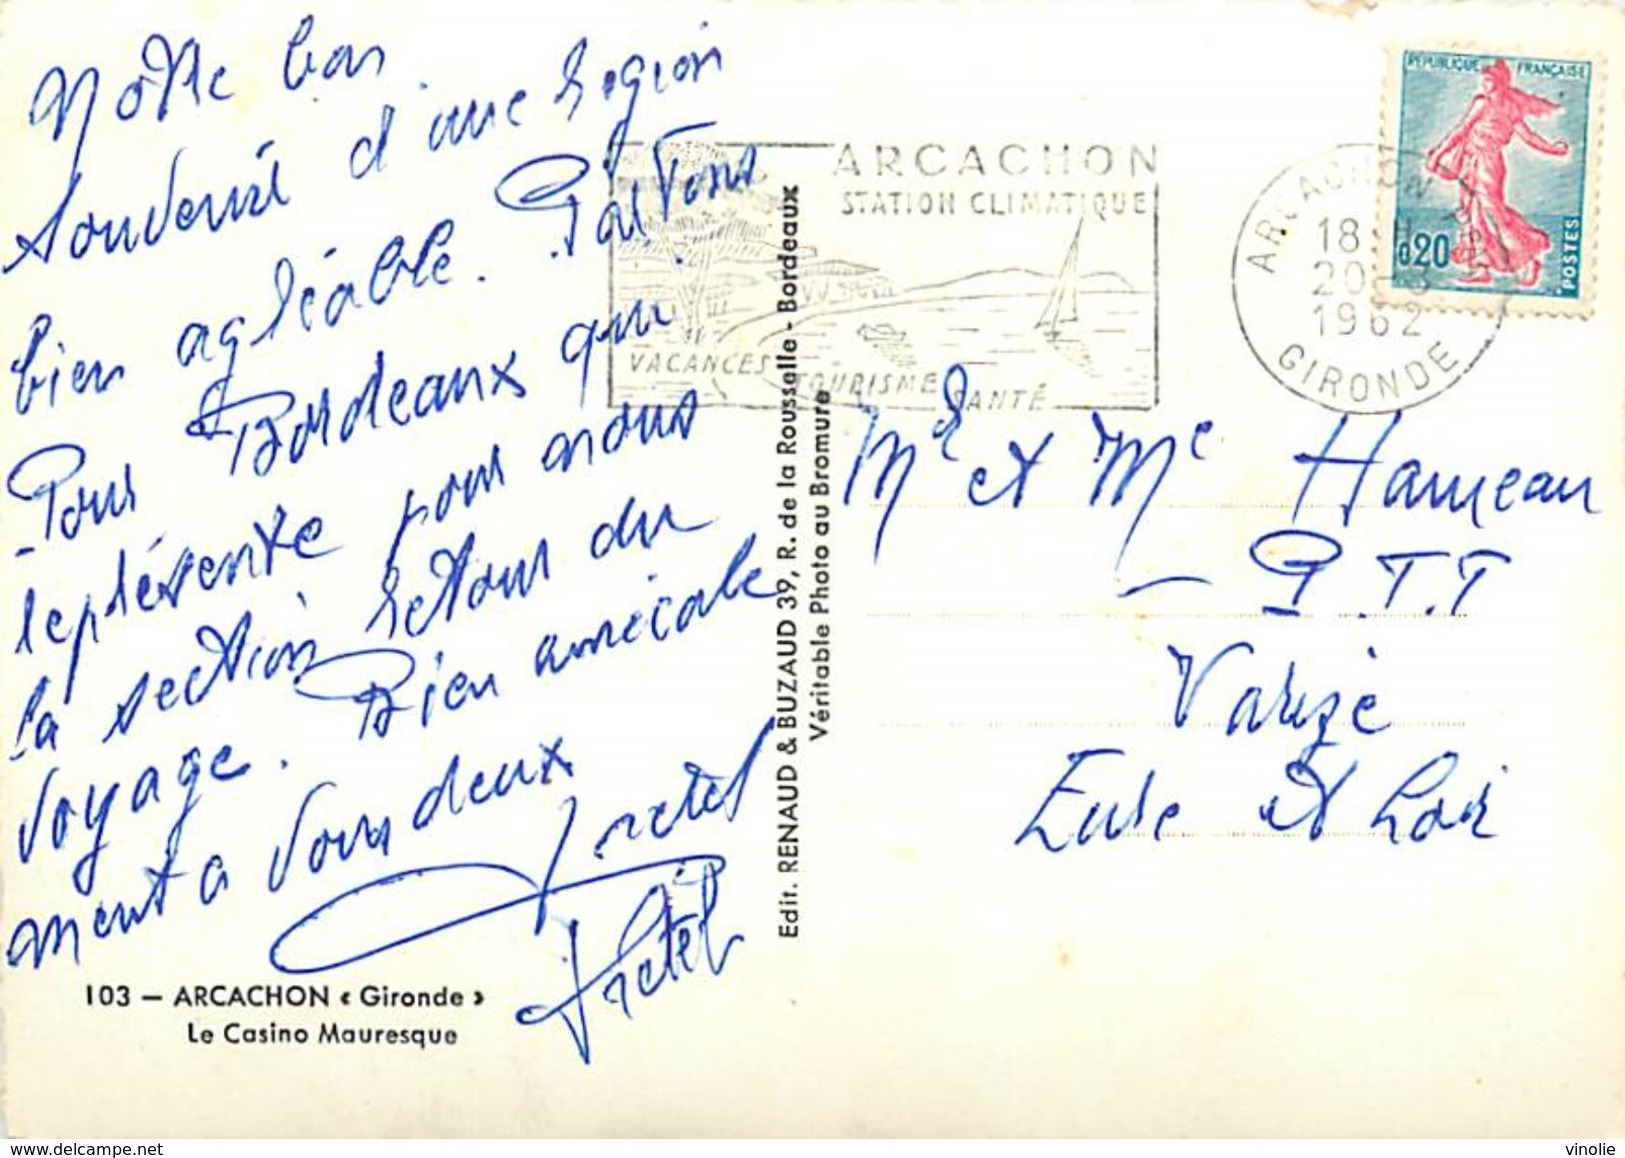 Notre bon
souvenir d'une région
bien agréable. Partons
pour Bordeaux qui
représente pour nous
la section retour du
voyage. Bien amicale
ment a vous deux
103 — ARCACHON « Gironde »
Le Casino Mauresque
Edit. RENAUD & BUZAUD 39, R. de la Rousselle - Bordeaux
Véritable Photo au Bromure
ARCACHON
STATION CLIMATIQUE
VACANCES TOURISME SANTÉ
ARCACHON
18 H
20
1962
GIRONDE
REPUBLIQUE FRANÇAISE
0,20
POSTES
Mr et Me Hameau
P.T.T
Varize
Eure et Loir
delcampe.net
vinolie